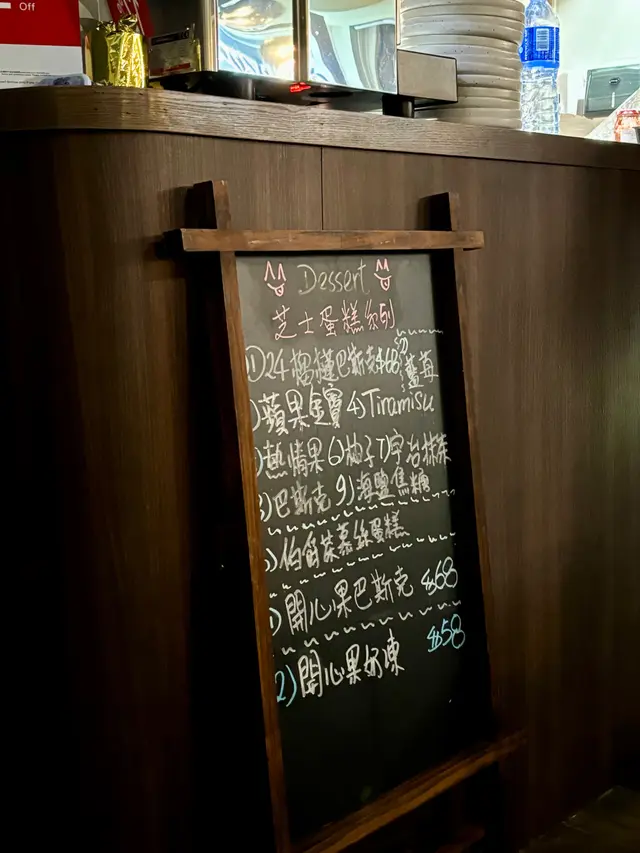 Off
Dessert
芝士蛋糕系列
1)24榴槤巴斯克$68 2)藍莓
)蘋果金寶 4)Tiramisu
)熱情果 6)柚子 7)宇治抹茶
)巴斯克 9)海鹽焦糖
)伯爵茶慕絲蛋糕
)開心果巴斯克 $68
2)開心果奶凍 $58